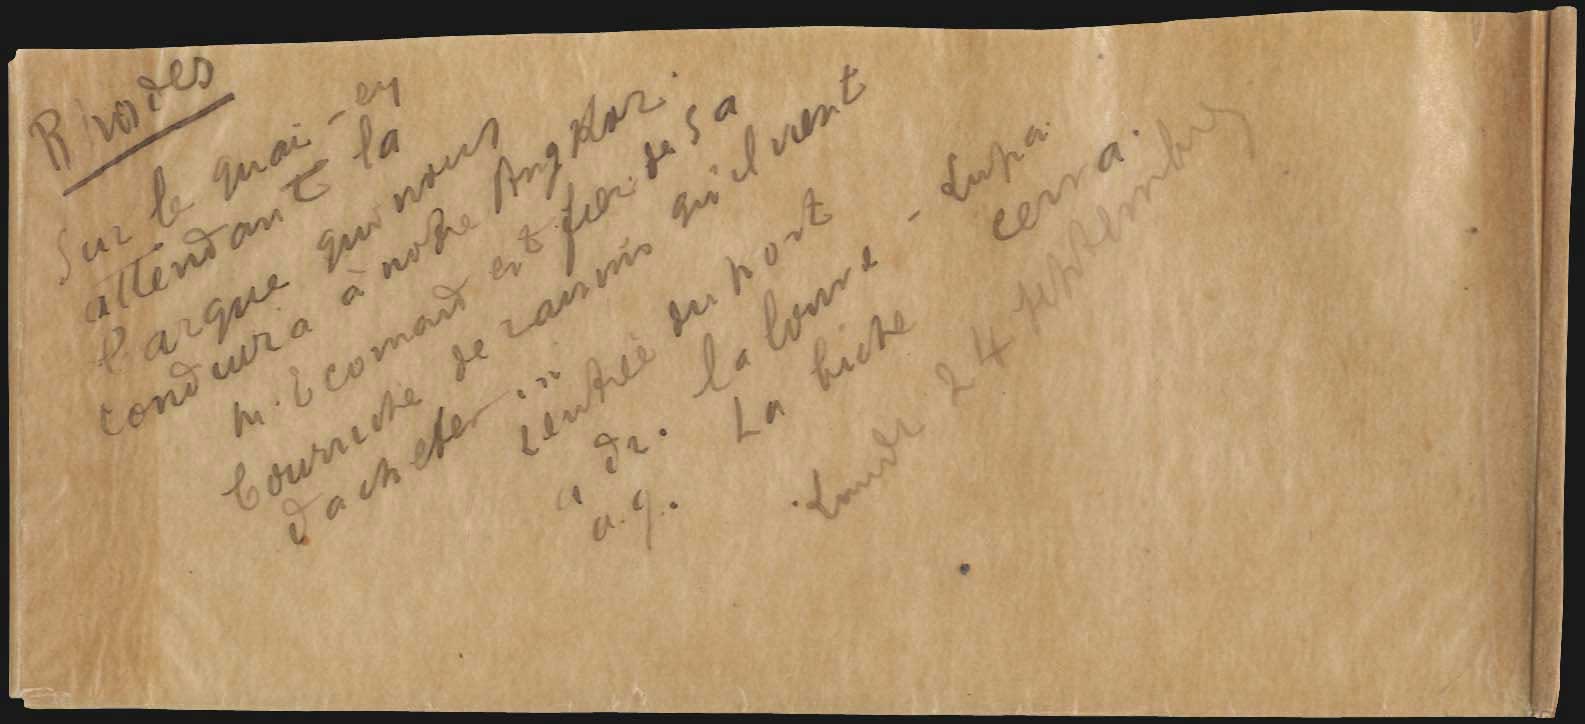 Rhodes
Sur le quai - en
attendant la
barque qui nous
conduira à notre Angkor.
M. Ecomard est fier de sa
bourriche de raisins qu'il vient
d'acheter ...
rentrée du port
a dr. la louve - Lupa.
a.g. La biche cerva.
Lundi 24 septembre